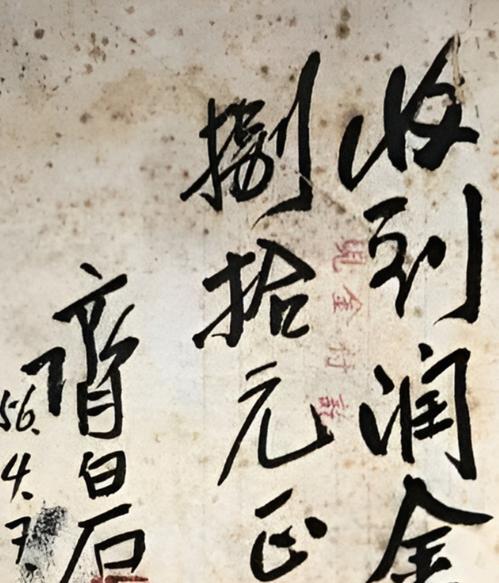 收到润金
捌拾元正
齐白石
56.4.7.
现金付讫